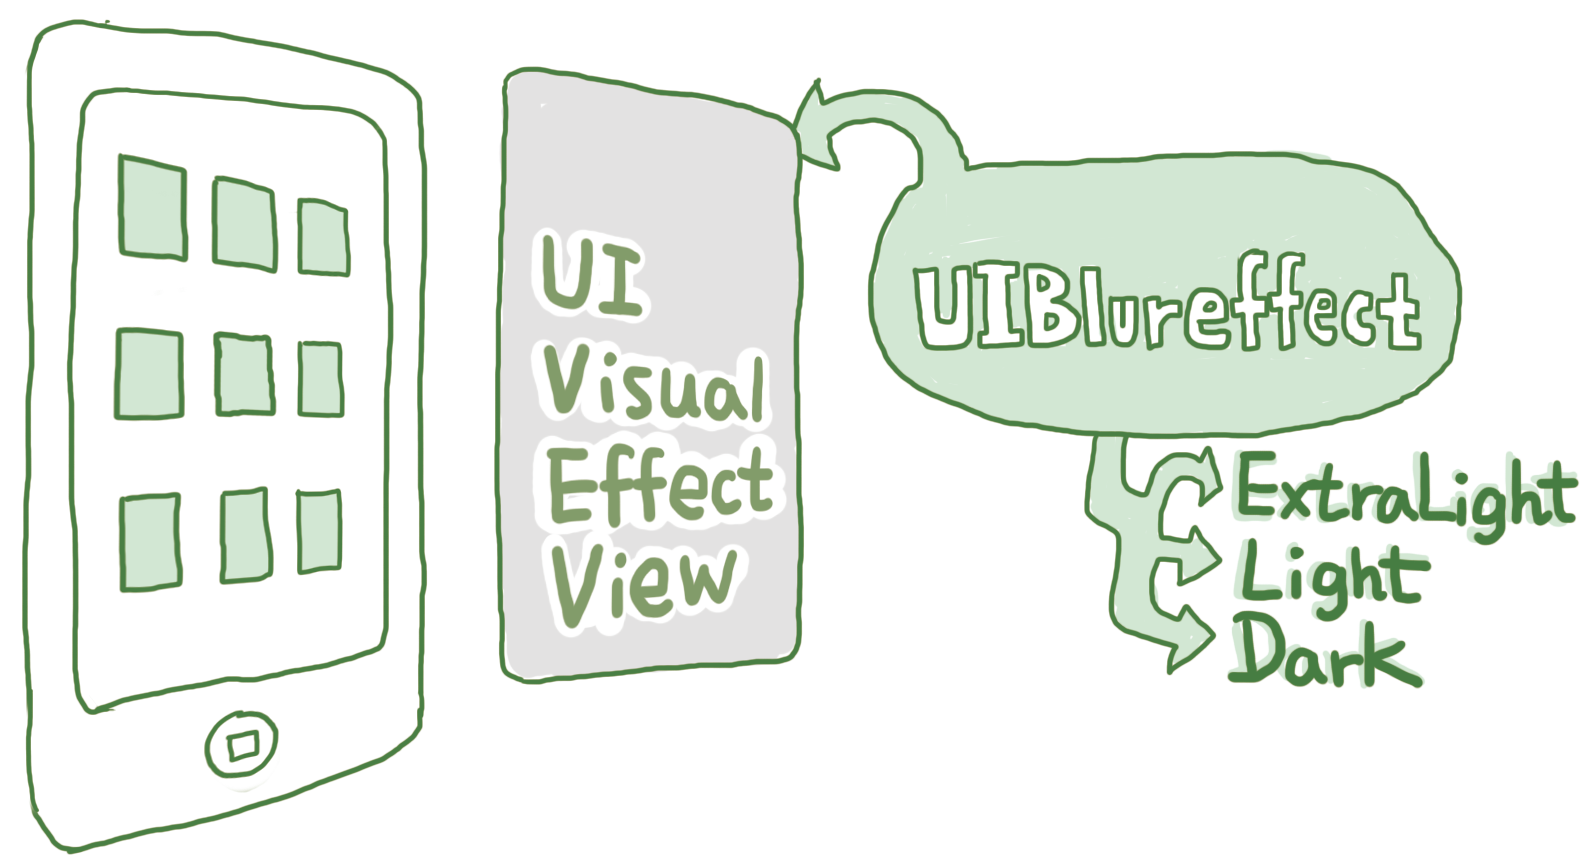 UI
Visual
Effect
View
UIBlureffect
ExtraLight
Light
Dark